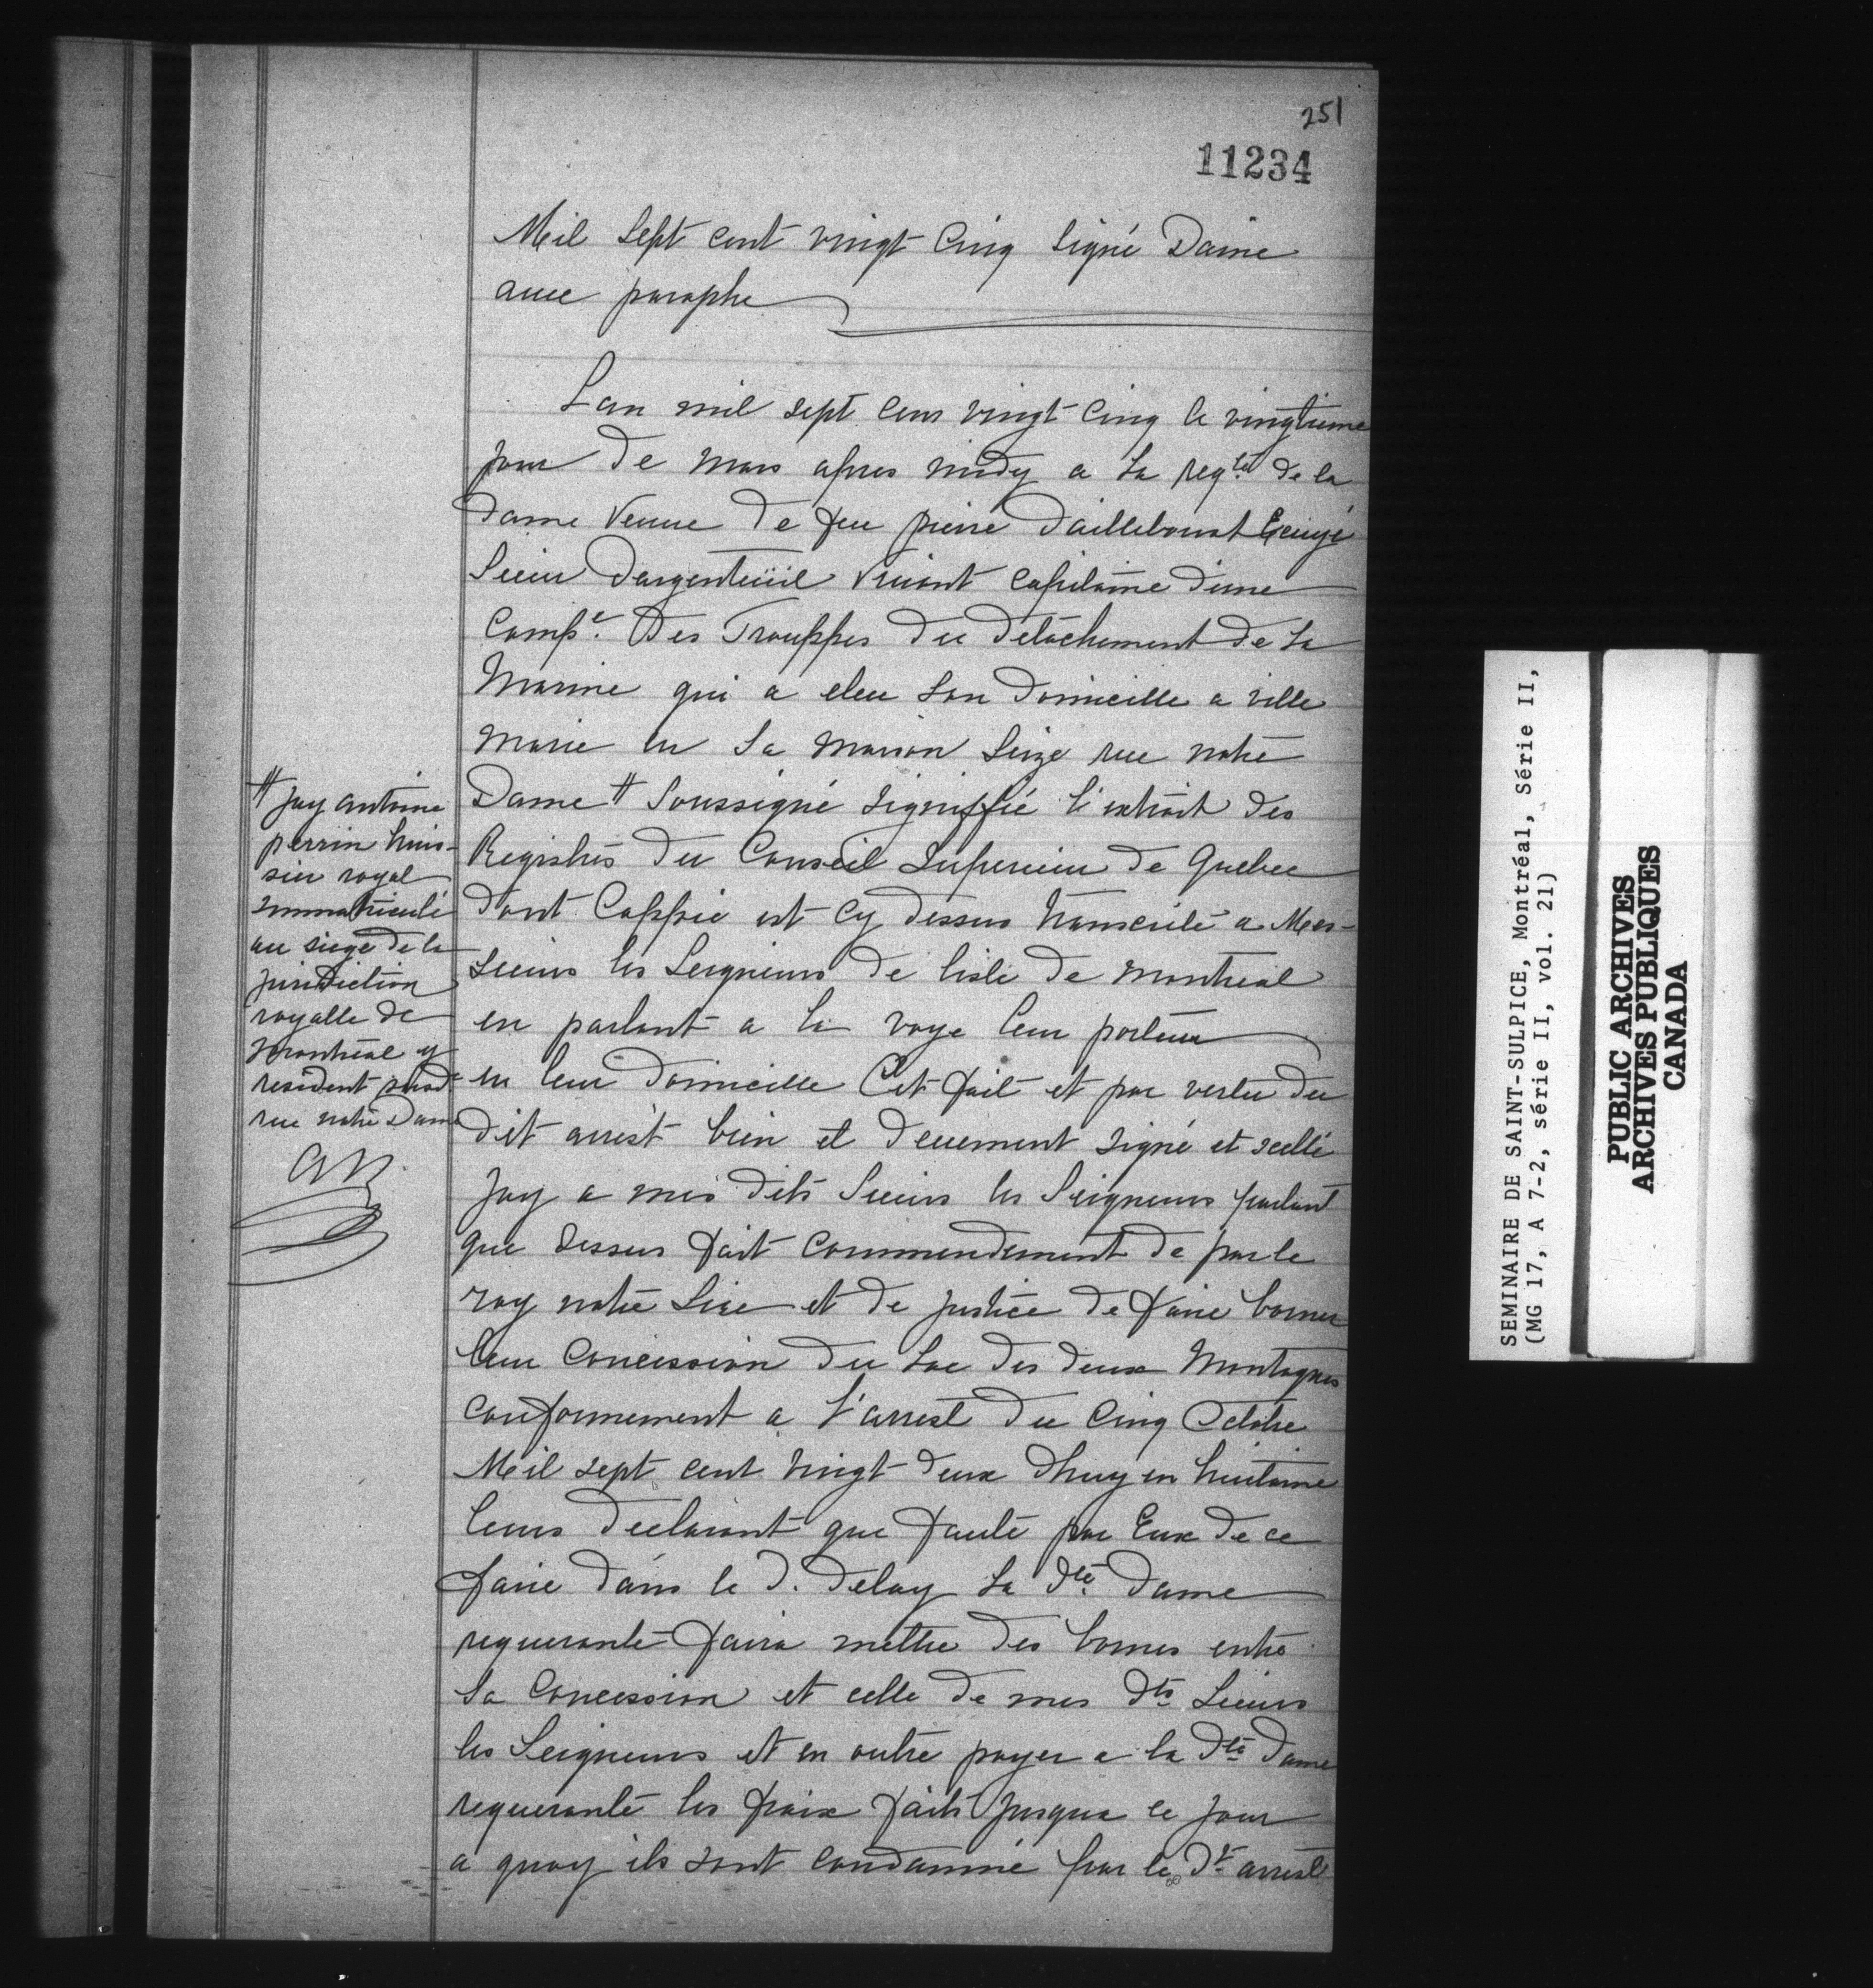 251
11234
Mil Sept cent vingt Cinq signé Daine
avec paraphe
Lan mil sept cens vingt Cinq le vingtieme
jour de mars apres midy a la reqte de la
Dame Veuve de feu pierre Dailleboust Ecuyé
Sieur Dargenteüil vivant capitaine d'une
Compe. Des Trouppes du détachement de la
Marine qui a eleu son domicille a ville
marie en sa maison size rue notre
Dame # Soussigné signiffié l'extrait des
Registres du Conseil Superieur de Quebec
dont Coppie est cy dessus transcrite a Mes-
sieurs les Seigneurs de lisle de Montreal
en parlant a la voye leur porteur
en leur domicille Cet fait et par vertu du
dit arrest bien et deuement signé et scellé
Jay a mes dits Sieurs les Seigneurs parlant
que dessus fait commendement de par le
roy notre Sire et de justice de faire borner
leur Concession du Lac des deux Montagnes
conformement a l'arrest du Cinq Octobre
Mil sept cent vingt deux dhuy en huitaine
leurs declarant que faute par Eux de ce
faire dans le d. delay la dte. Dame
requerante faira mettre des bornes entre
sa Concession et celle de mes dts Sieurs
les Seigneurs et en outre payer a la dte Dame
requerante les fraix faits jusqua ce jour
a quoy ils sont condamné par le dt arrest
# jay antoine
perrin huis-
sier royal
immatriculé
au siege de la
juridiction
royalle de
Montreal y
resident susde
rue notre Dame
SEMINAIRE DE SAINT-SULPICE, Montréal, Série II,
(MG 17, A 7-2, série II, vol. 21)
PUBLIC ARCHIVES
ARCHIVES PUBLIQUES
CANADA